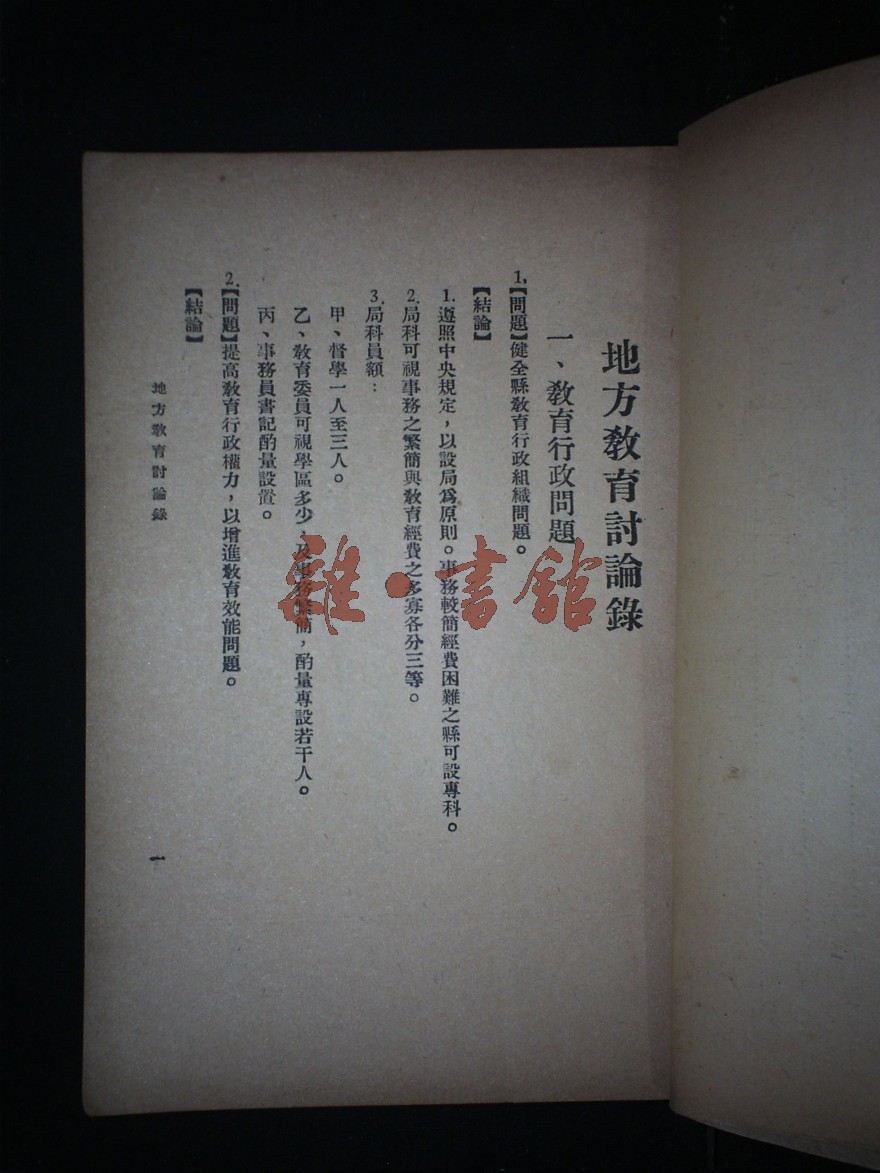 地方教育討論錄
一、教育行政問題
1.【問題】健全縣教育行政組織問題。
【結論】
1.遵照中央規定，以設局爲原則。事務較簡經費困難之縣可設專科。
2.局科可視事務之繁簡與教育經費之多寡各分三等。
3.局科員額：
甲、督學一人至三人。
乙、教育委員可視學區多少、及事務繁簡，酌量專設若干人。
丙、事務員書記酌量設置。
2.【問題】提高教育行政權力，以增進教育效能問題。
【結論】
地方教育討論錄
一
雜·書館